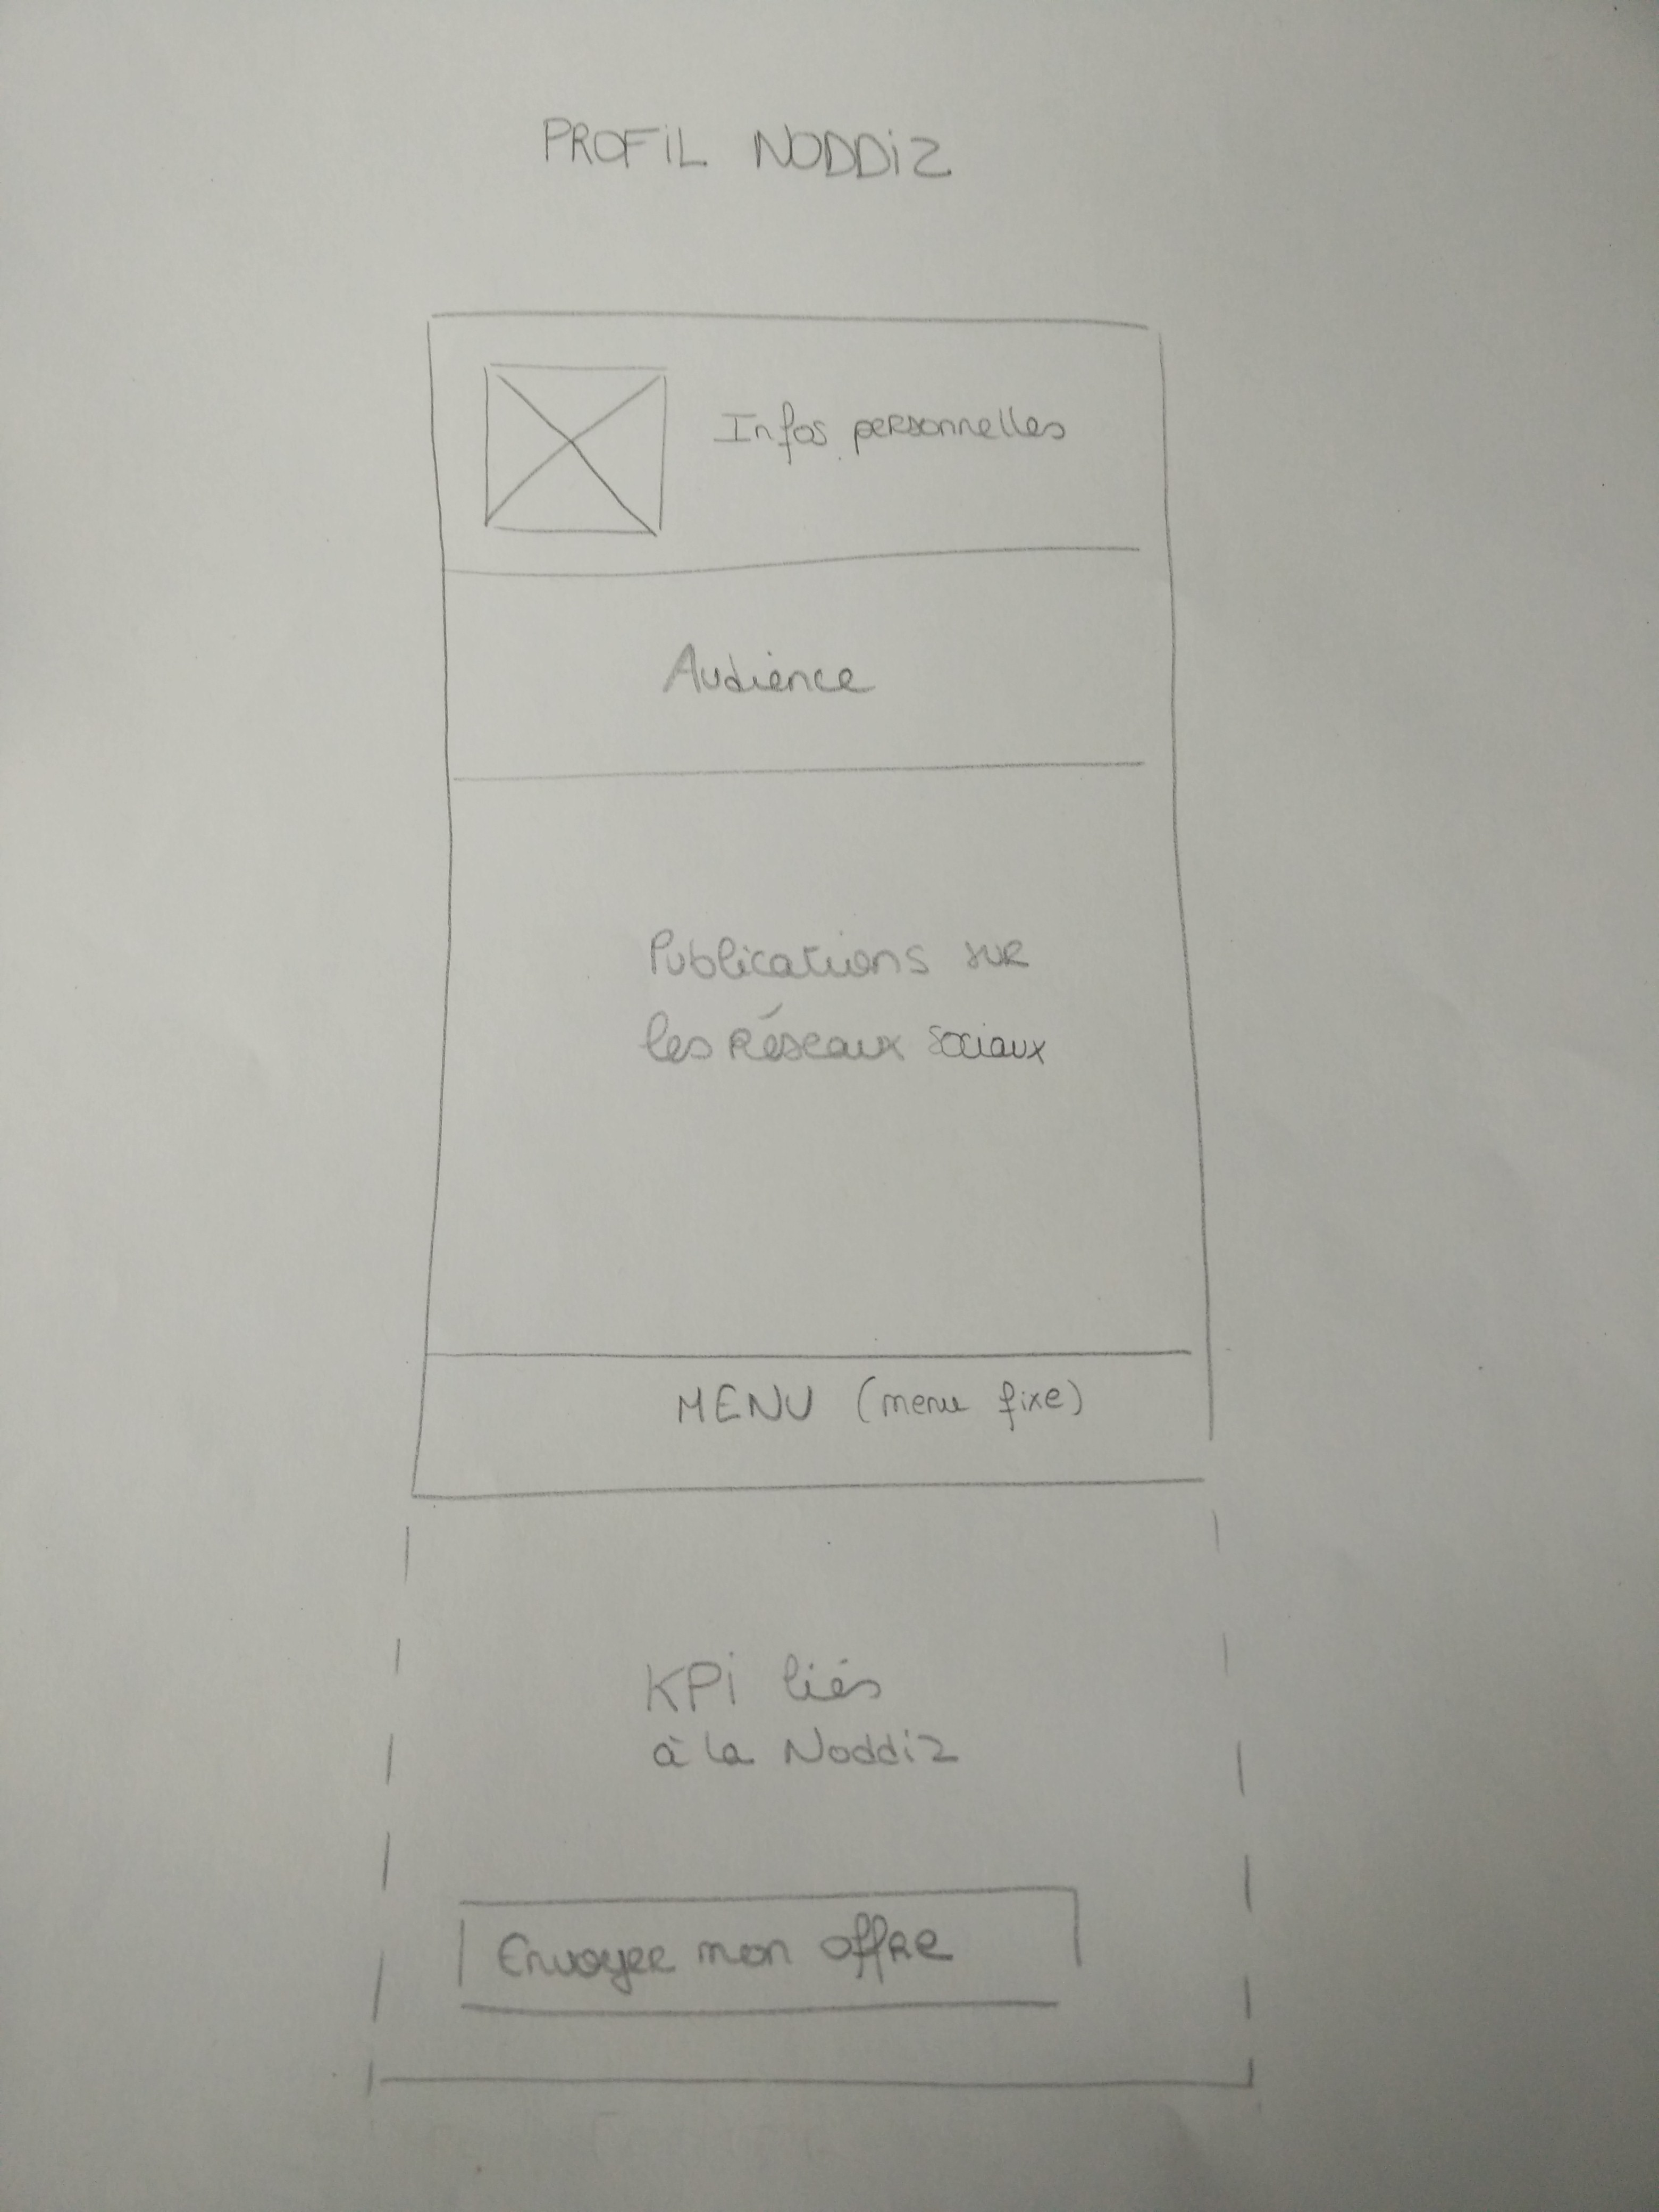 PROFiL NODDiZ
Infos personnelles
Audience
Publications sur
les réseaux sociaux
MENU (menu fixe)
KPi liés
à la Noddiz
Envoyer mon offre